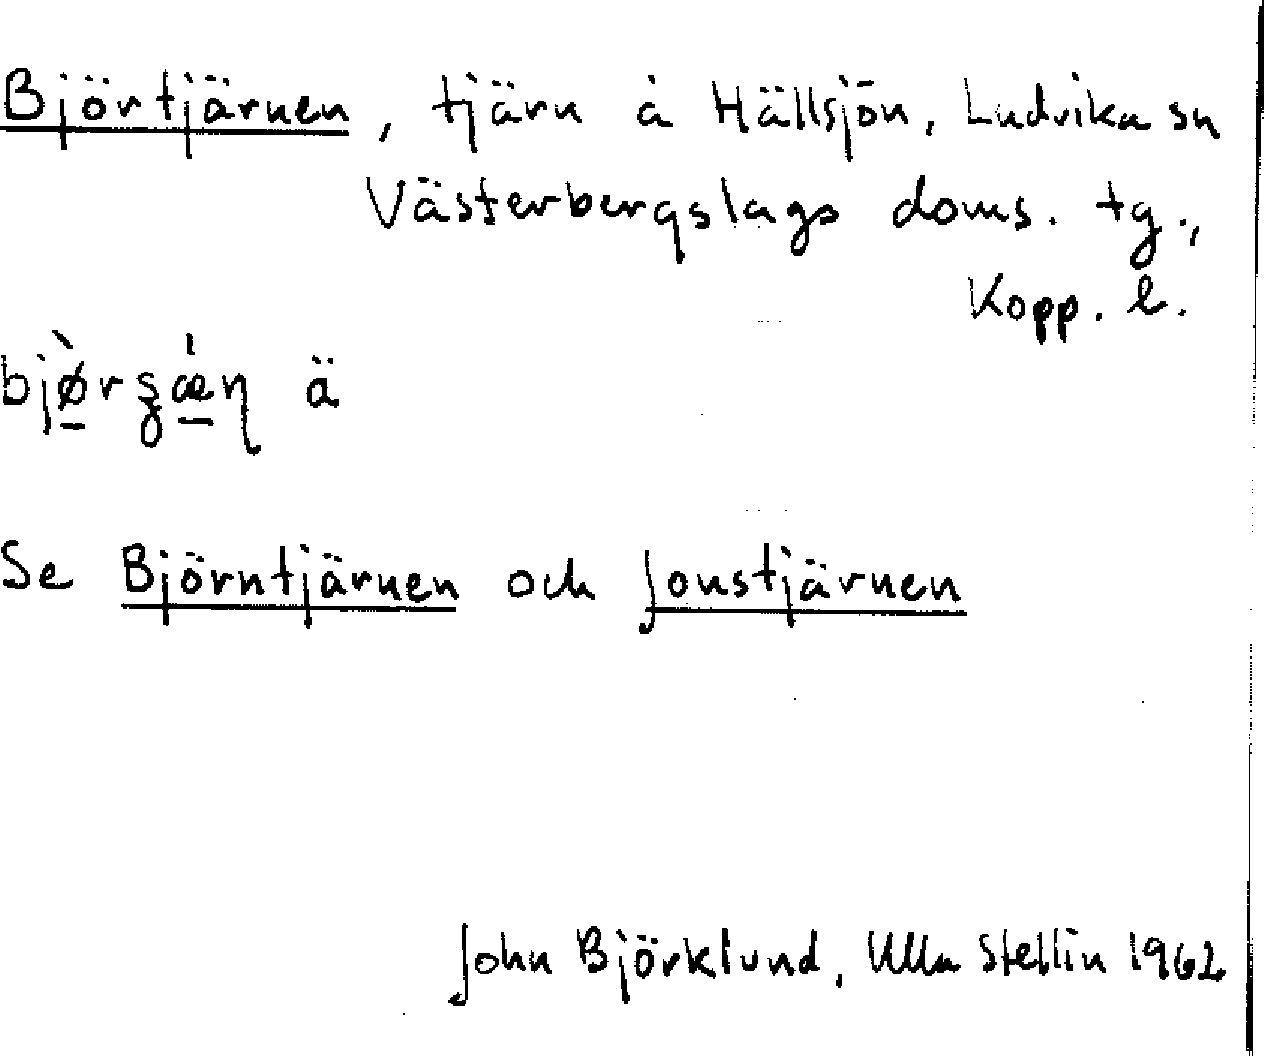 Björtjärnen, tjärn å Hällsjön, Ludvika sn
Västerbergslags doms. tg.,
Kopp. l.
ä
Se Björntjärnen och Jonstjärnen
John Björklund, Ulla Stellin 1962